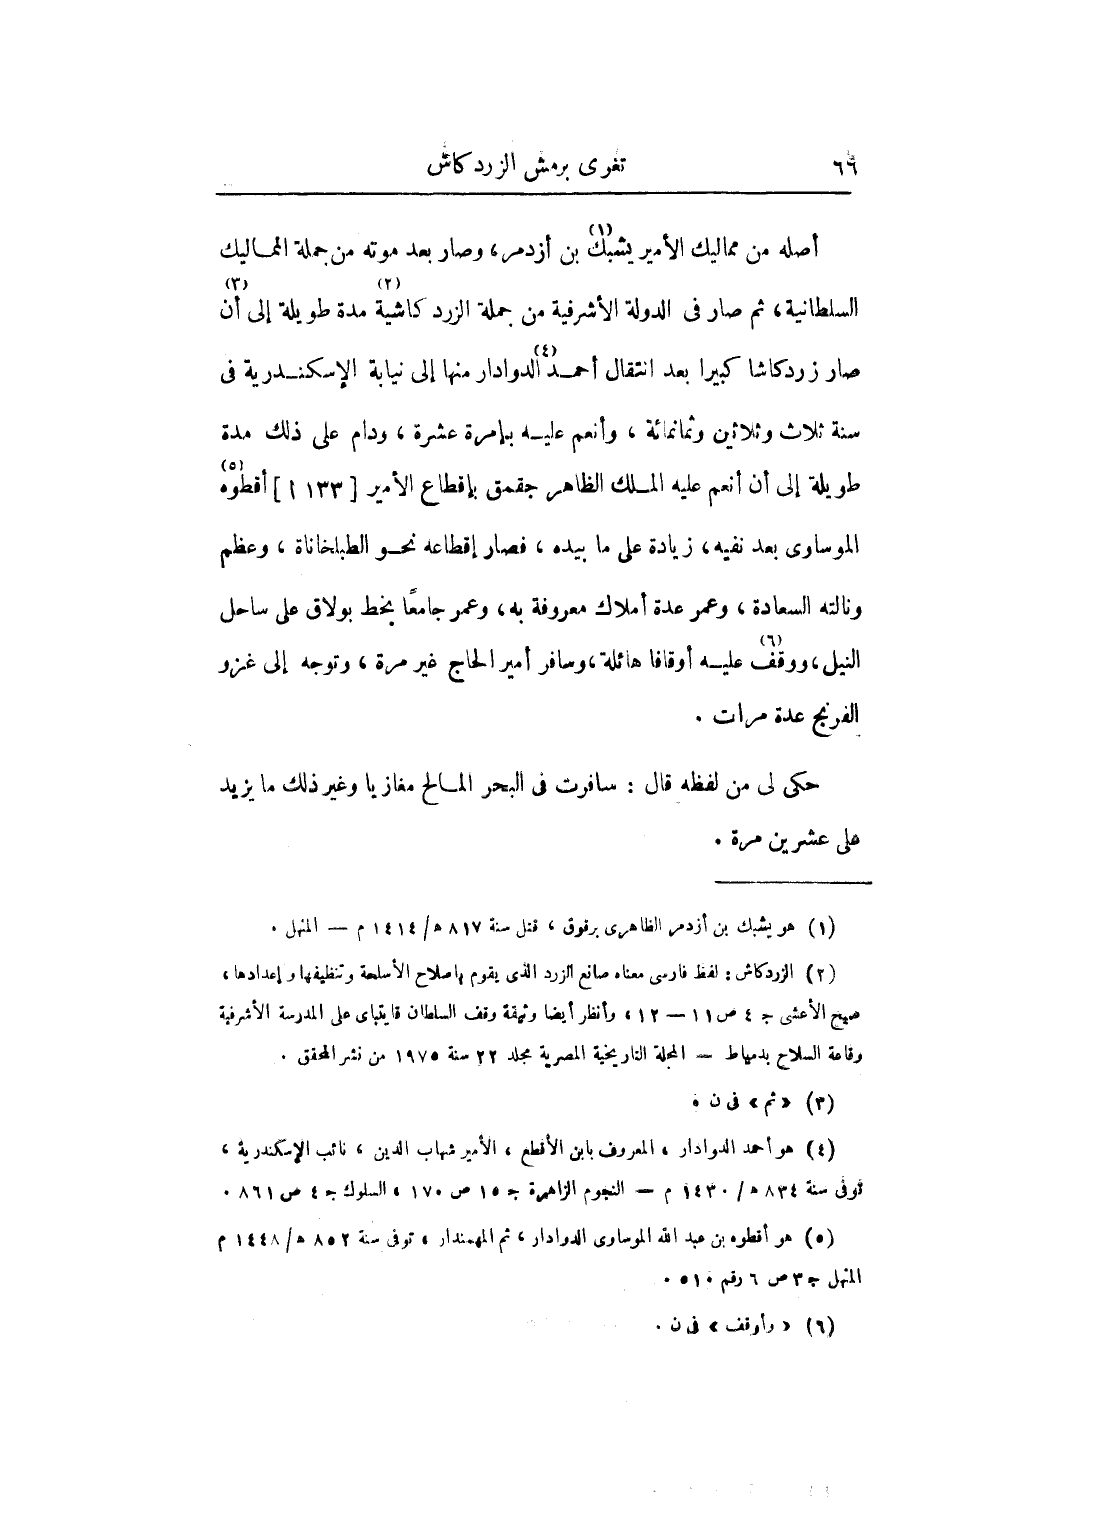 ٦٦ تغرى برمش الزردكاش
أصله من مماليك الأمير يشبك(١) بن أزدمر، وصار بعد موته من جملة المماليك
السلطانية، ثم صار فى الدولة الأشرفية من جملة الزردكاشية(٢) مدة طويلة إلى(٣) أن
صار زردكاشا كبيرا بعد انتقال أحمد(٤) الدوادار منها إلى نيابة الإسكندرية فى
سنة ثلاث وثلاثين وثمانمائة، وأنعم عليه بإمرة عشرة، ودام على ذلك مدة
طويلة إلى أن أنعم عليه الملك الظاهر جقمق بإقطاع الأمير [ ١٣٣ أ ] أقطوه(٥)
الموساوى بعد نفيه، زيادة على ما بيده، فصار إقطاعه نحو الطبلخاناة، وعظم
ونالته السعادة، وعمر عدة أملاك معروفة به، وعمر جامعًا بخط بولاق على ساحل
النيل، ووقف(٦) عليه أوقافا هائلة، وسافر أمير الحاج غير مرة، وتوجه إلى غزو
الفرنج عدة مرات .
حكى لى من لفظه قال : سافرت فى البحر المالح مغازيا وغير ذلك ما يزيد
على عشرين مرة .
(١) هو يشبك بن أزدمر الظاهرى برقوق، قتل سنة ٨١٧ هـ/ ١٤١٤ م — المنهل .
(٢) الزردكاش : لفظ فارسى معناه صانع الزرد الذى يقوم بإصلاح الأسلحة وتنظيفها وإعدادها،
صبح الأعشى جـ ٤ ص ١١ — ١٢، وأنظر أيضا وثيقة وقف السلطان قايتباى على المدرسة الأشرفية
وقاعة السلاح بدمياط — المجلة التاريخية المصرية مجلد ٢٢ سنة ١٩٧٥ من نشر المحقق .
(٣) « ثم » فى ن .
(٤) هو أحمد الدوادار، المعروف بابن الأقطع، الأمير شهاب الدين، نائب الإسكندرية،
توفى سنة ٨٣٤ هـ/ ١٤٣٠ م — النجوم الزاهرة جـ ١٥ ص ١٧٠، السلوك جـ ٤ ص ٨٦١ .
(٥) هو أقطوه بن عبد الله الموساوى الدوادار، ثم المهمندار، توفى سنة ٨٥٢ هـ/ ١٤٤٨ م
المنهل جـ ٣ ص ٦ رقم ٥١٠ .
(٦) « وأوقف » فى ن .